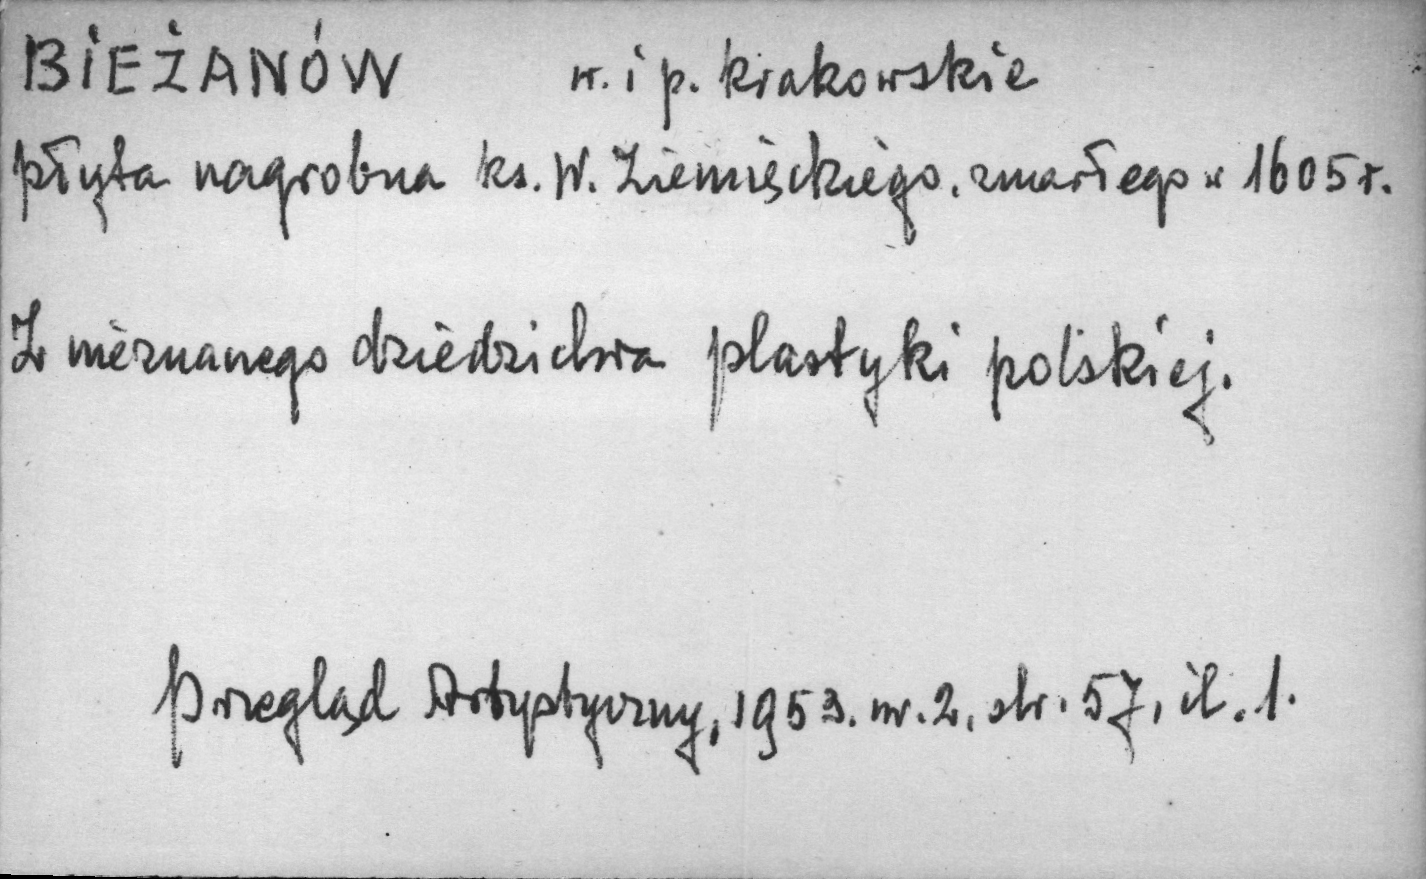 BIEŻANÓW w. i p. krakowskie
płyta nagrobna ks. W. Ziemięckiego, zmarłego w 1605 r.
Z nieznanego dziedzictwa plastyki polskiej.
Przegląd Artystyczny, 1953. nr. 2, str. 57, il. 1.